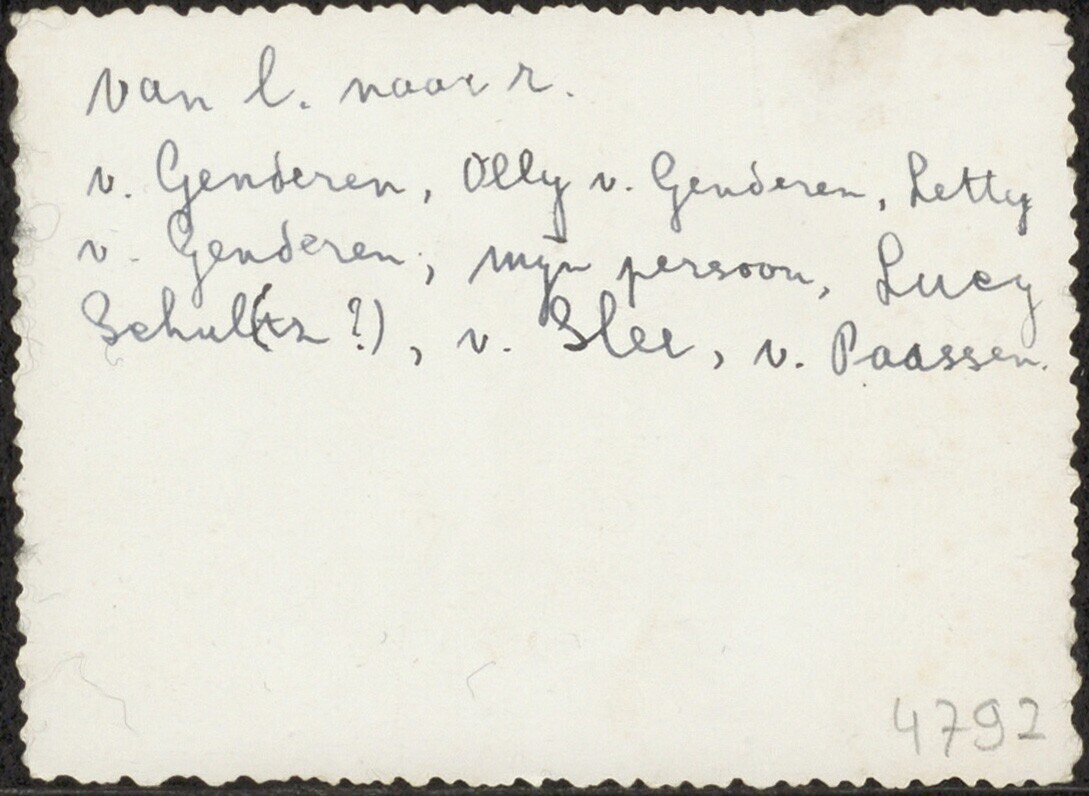 van l. naar r.
v. Genderen, Olly v. Genderen, Letty
v. Genderen, mijn persoon, Lucy
Schul(tz ?), v. Slee, v. Paassen.
4792